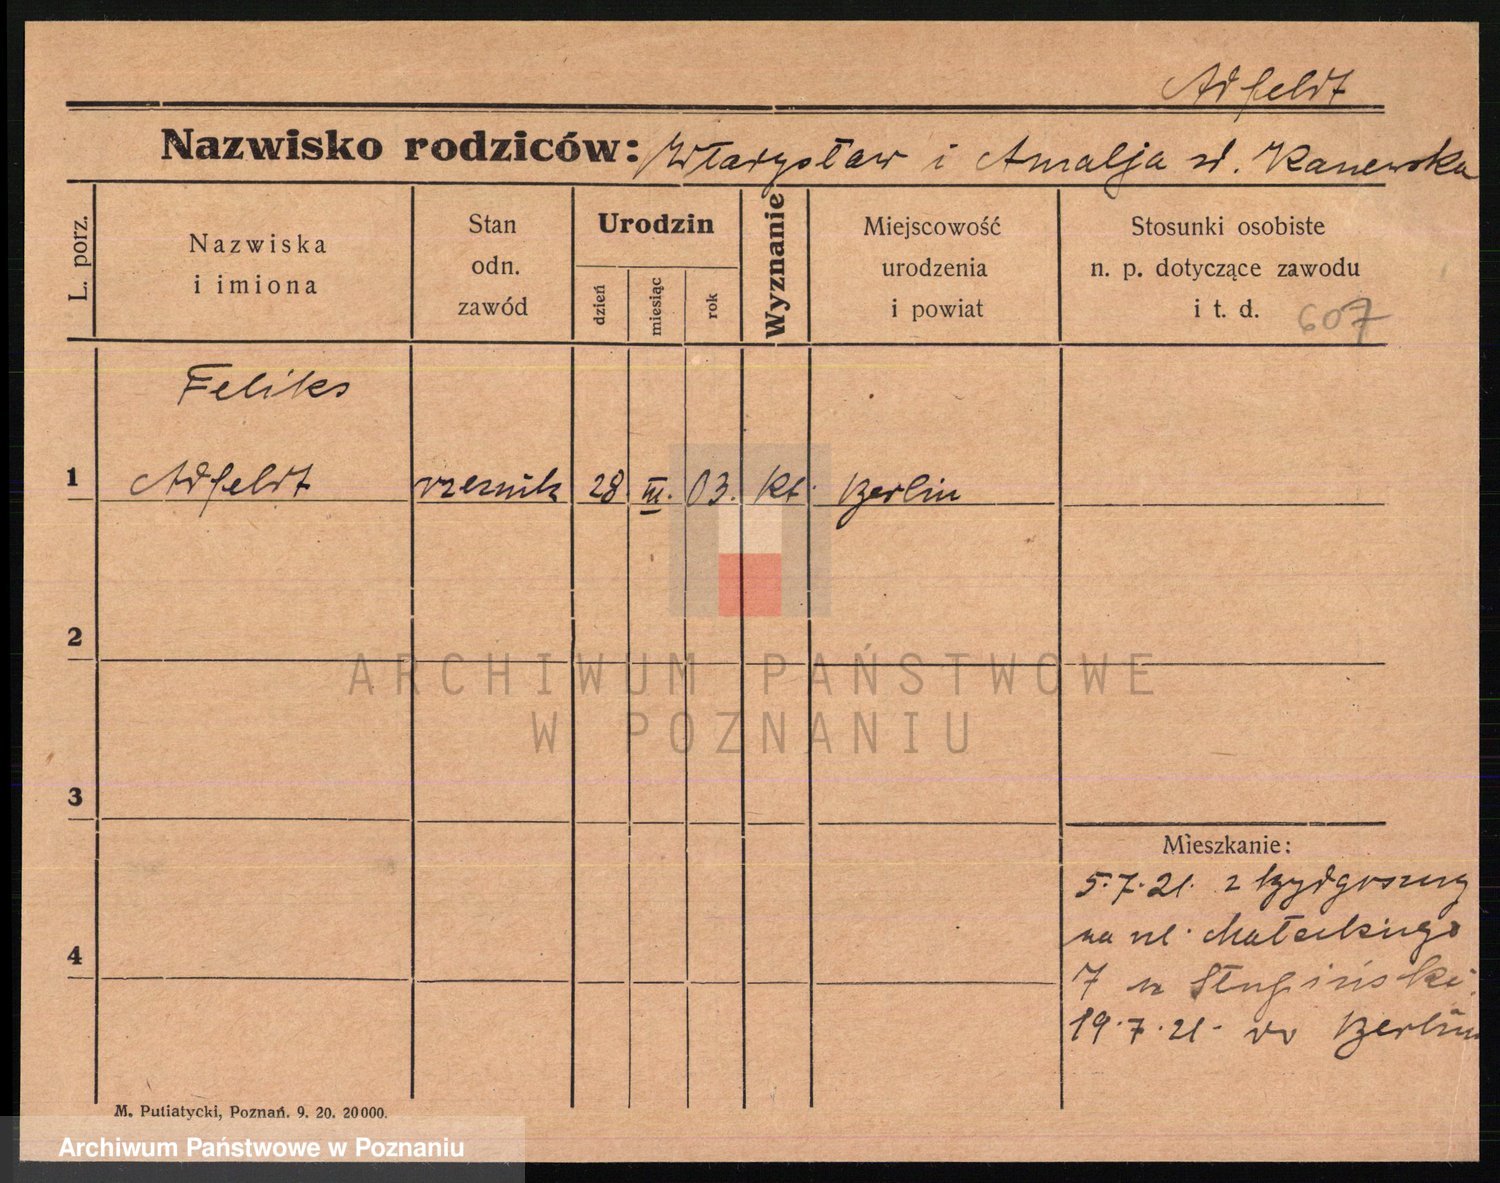 Adfeldt
Nazwisko rodziców: Władysław i Amalja zd. Kanewska
L. porz.
Nazwiska
i imiona
Stan
odn.
zawód
Urodzin
dzień
miesiąc
rok
Wyznanie
Miejscowość
urodzenia
i powiat
Stosunki osobiste
n. p. dotyczące zawodu
i t. d.
607
Feliks
1 Adfeldt rzeźnik 28 III. 03. kt. Berlin
2
ARCHIWUM PAŃSTWOWE
W POZNANIU
3
Mieszkanie:
5.7.21. z Bydgoszczy
na ul. Małeckiego
4
7 u
19.7.21. do Berlina
M. Putiatycki, Poznań. 9. 20. 20000.
Archiwum Państwowe w Poznaniu